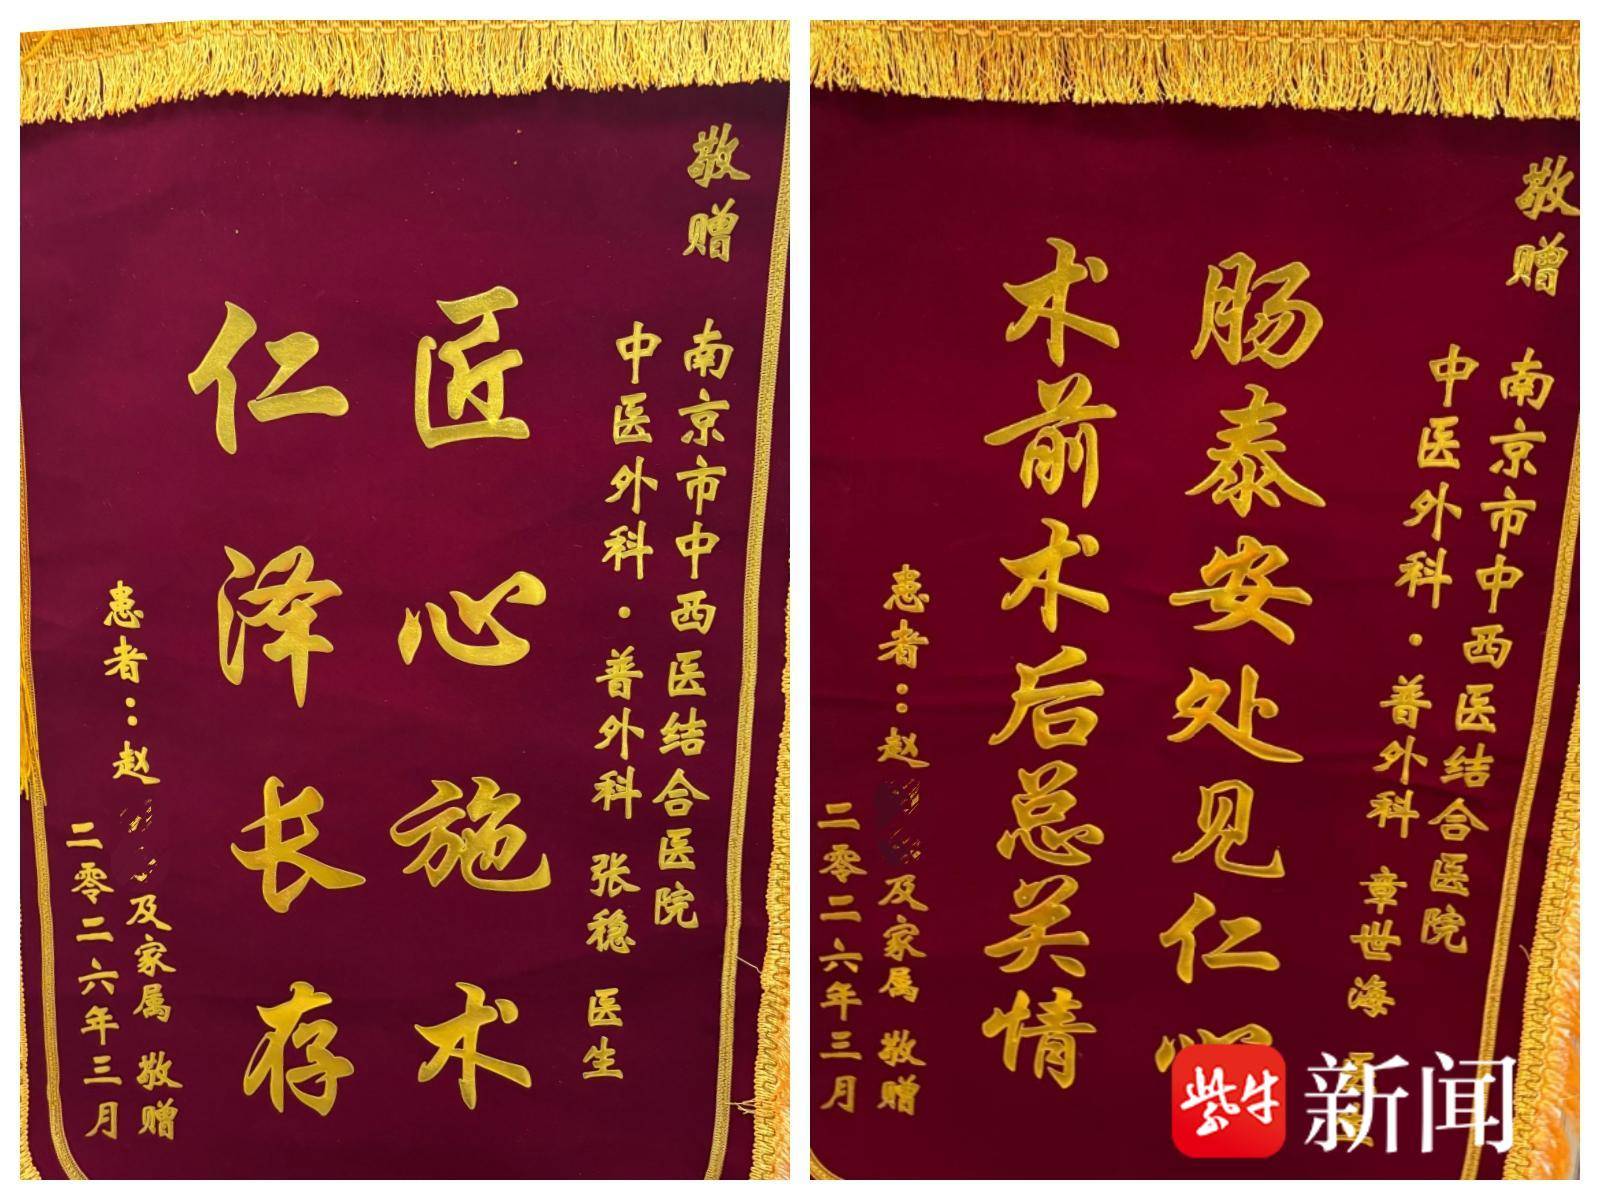 敬赠
南京市中西医结合医院
中医外科·普外科 张稳 医生
匠心施术
仁泽长存
患者：赵
及家属 敬赠
二零二六年三月
敬赠
南京市中西医结合医院
中医外科·普外科 章世海
肠泰安处见仁心
术前术后总关情
患者：赵
及家属 敬赠
二零二六年三月
紫牛新闻